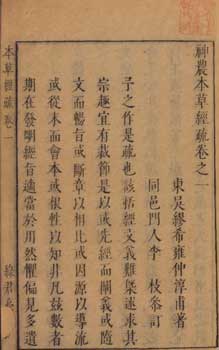 神農本草經疏卷之一
東吳繆希雍仲淳甫著
同邑門人李枝參訂
予之作是疏也該括經文義難桀述求其
宗趣宜有裁節是以或先經而闡義或隨
文而暢旨或斷章以相比或因源以導流
或從末而會本或根性以知非凡茲數者
期在發明經旨適當於用然懼偏見多遺
本草經疏卷一
綠君亭